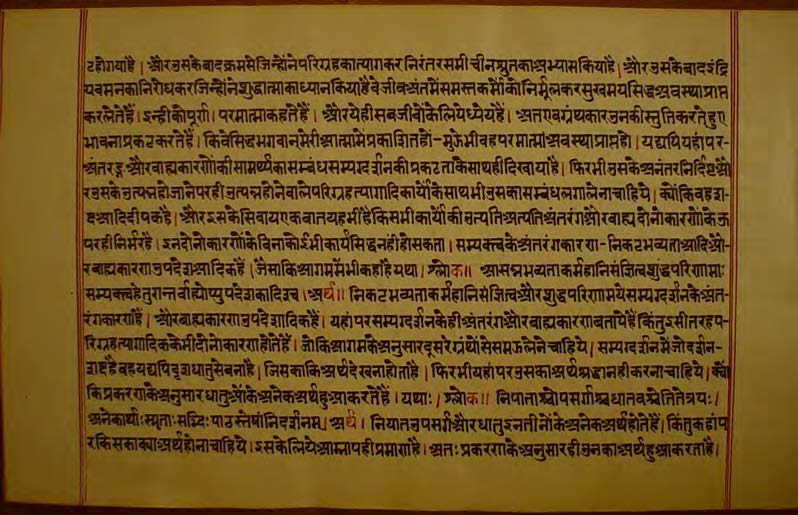 टहोगयाहै। और उसकेबादक्रमसे जिन्होंनेपरिग्रहकात्यागकर निरंतरसमीचीनश्रुतकाअभ्यासकियाहै। और उसकेबादइंद्रि
यवमनकानिरोधकर जिन्होंनेशुद्धात्माकाध्यानकियाहै वेजीवअंतमेंसमस्तकर्मोंकोनिर्मूलकरसुखमयसिद्धअवस्थाप्राप्त
करलेतेहैं। इन्हींकोपूर्ण। परमात्माकहतेहैं। औरयेहीसबजीवोंकेलियेध्येयहैं। अतएवग्रंथकारउनकीस्तुतिकरतेहुए
भावनाप्रकटकरतेहैं। किवेसिद्धभगवानमेरीआत्मामेंप्रकाशितहों- मुझेभीवहपरमात्माअवस्थाप्राप्तहो। यद्यपियहांपर-
अंतरङ्गऔरबाह्यकारणोंकीसामर्थ्यकासम्बंधसम्यग्दर्शनकीप्रकटताकेसाथहीदिखायाहै। फिरभीयहकेअनंतरनिर्दिष्टऔ
रउसकेउत्पन्नहोजानेपरहीउत्पन्नहोनेवालेपरिग्रहत्यागादिकार्योंकेसाथभीउसकासम्बंधलगालेनाचाहिये। क्योंकिवहआ
द्यआदिदीपकहै। औरइसकेसिवायएकबातयहभीहैकिसभीकार्योंकीउत्पत्तिअंतरंगऔरबाह्यदोनोकारणोंकेऊ
परहीनिर्भरहै। इनदोनोकारणोंकेबिनाकोईभीकार्यसिद्धनहींहोसकता। सम्यक्त्वकेअंतरंगकारण- निकटभव्यताआदिऔ-
रबाह्यकारणउपदेशआदिकहैं। जैसाकिआगममेंभीकहाहैयथा। श्लोक॥ आसन्नभव्यताकर्महानिसंज्ञित्वशुद्धपरिणामाः
सम्यक्त्वहेतुरान्तर्बाह्योप्युपदेशकादिश्च। अर्थ॥ निकटभव्यताकर्महानिसंज्ञित्वऔरशुद्धपरिणामयेसम्यग्दर्शनकेअंत-
रंगकारणहैं। औरबाह्यकारणउपदेशादिकहैं। यहांपरसम्यग्दर्शनकेहीअंतरंगऔरबाह्यकारणबतायेहैंकिंतुइसीतरहप-
रिग्रहत्यागादिककेभीदोनोकारणहोतेहैं। जोकिआगमकेअनुसारदूसरेग्रंथोंसेसमझलेनेचाहिये। सम्यग्दर्शनमेंजोदर्शन-
शब्दहैवहयद्यपिदृशधातुसेबनाहै। जिसकाकिअर्थदेखनाहोताहै। फिरभीयहांपरउसकाअर्थश्रद्धानहीकरनाचाहिये। क्यों
किप्रकरणकेअनुसारधातुओंकेअनेकअर्थहुआकरतेहैं। यथाः। श्लोक॥ निपाताश्चोपसर्गाश्चधातवश्चेतितेत्रयः।
अनेकार्थाःस्मृताःसद्भिःपाठस्तेषांनिदर्शनम्। अर्थ। निपातउपसर्गऔरधातुइनतीनोंकेअनेकअर्थहोतेहैं। किंतुकहांप
रकिसकाक्याअर्थहोनाचाहिये। इसकेलियेआम्नायहीप्रमाणहै। अतःप्रकरणकेअनुसारहीउनकाअर्थहुआकरताहै।